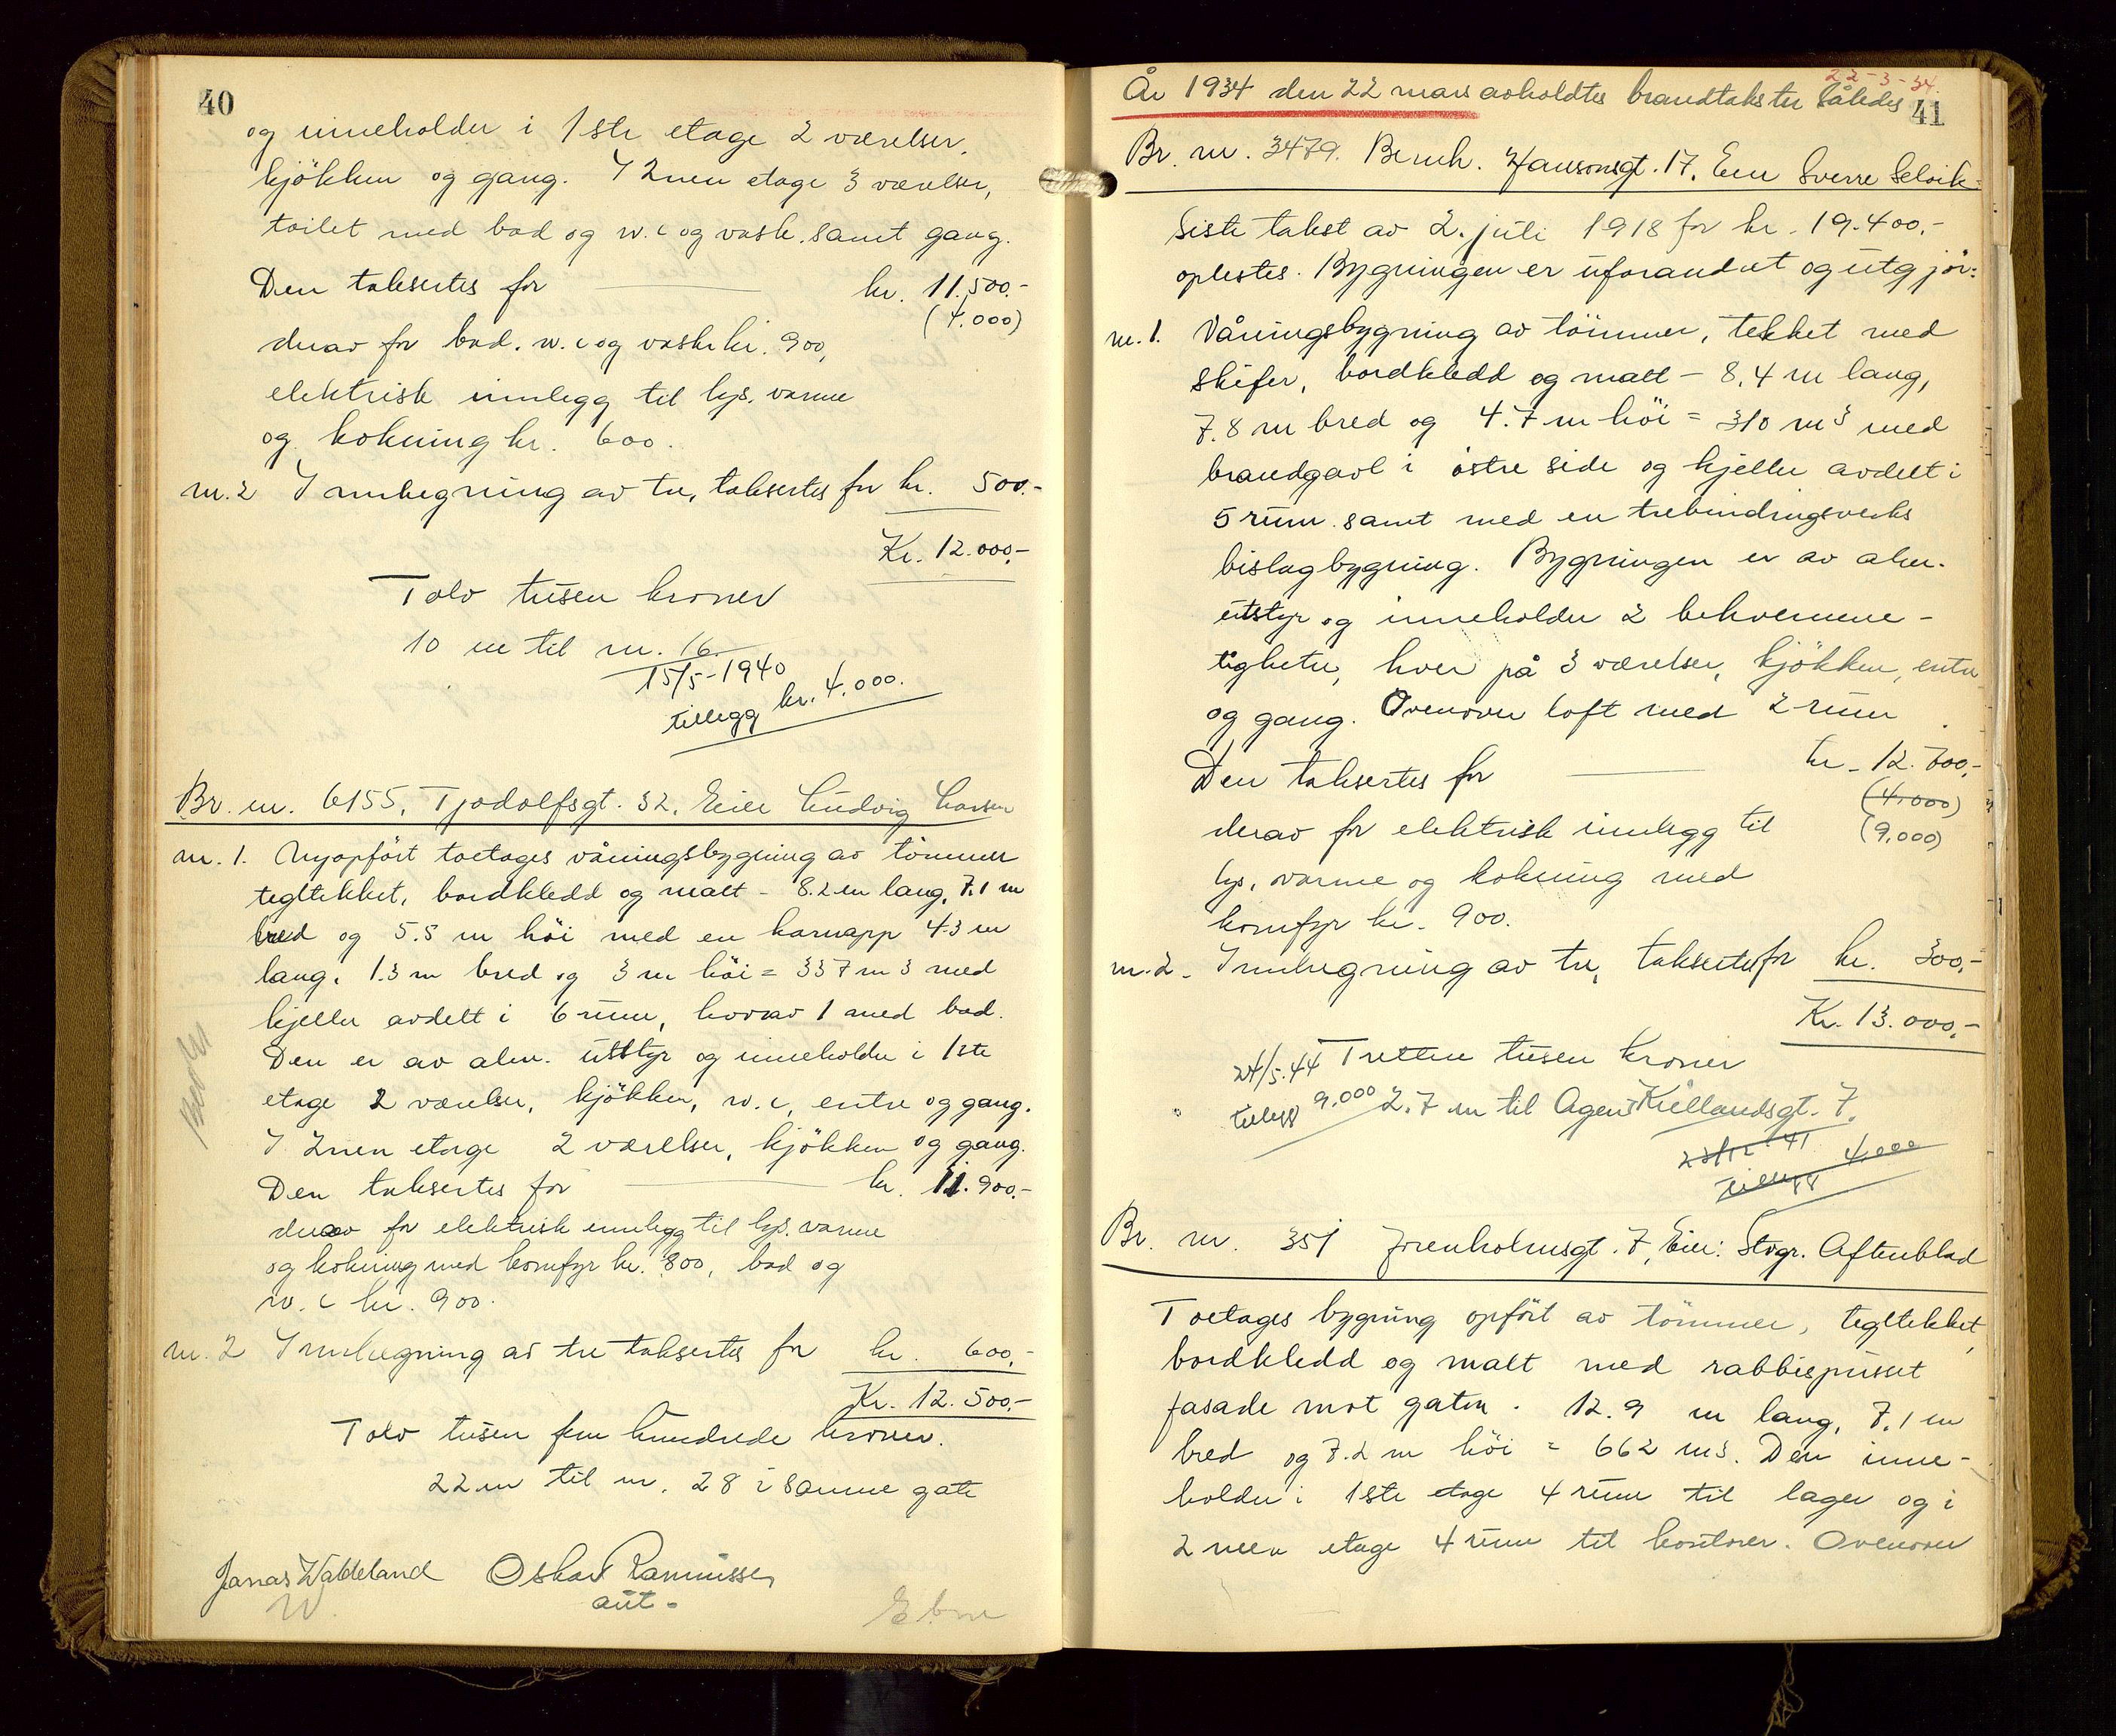 40
og inneholder i 1ste etage 2 værelser,
kjökken og gang. I 2nen etage 3 værelser,
toilet med bad og w.c og vask. samt gang.
Den taksertes for kr. 11.500.-
(4.000)
derav for bad. w.c og vask kr. 900,
elektrisk innlegg til lys. varme
og kokning kr. 600.
nr. 2 Innhegning av tre, taksertes for kr. 500.-
Kr. 12.000,-
Tolv tusen kroner
10 m til nr. 16.
15/5-1940
tillegg kr. 4.000.
Br. nr. 6155, Tjodolfsgt. 32. Eier Ludvig Larsen
nr. 1. Nyopført toetages våningsbygning av tömmer
tegltekket, bordkledd og malt - 8.2 m lang, 7.1 m
bred og 5.5 m höi med en karnapp 4.3 m
lang, 1.3 m bred og 3 m höi = 337 m3 med
kjeller avdelt i 6 rum, hvorav 1 med bad.
Den er av alm. utstyr og inneholder i 1ste
etage 2 værelser, kjökken, w.c, entre og gang.
I 2nen etage 2 værelser, kjökken og gang.
Den taksertes for kr. 11.900.-
derav for elektrisk innlegg til lys. varme
og kokning med komfyr kr. 800, bad og
w.c kr. 900.
nr. 2 Innhegning av tre taksertes for kr. 600,-
Kr. 12.500,-
Tolv tusen fem hundrede kroner.
22 m til nr. 28 i samme gate
Jonas Waldeland Oskar Rasmussen
aut.
22-3-34.
År 1934 den 22 mars avholdtes brandtakster således
41
Br. nr. 3479. Bernh. Hansonsgt. 17. Eier Sverre Selvik.
Siste takst av 2. juli 1918 for kr. 19.400.-
oplestes. Bygningen er uforandret og utgjör:
nr. 1. Våningsbygning av tömmer, tekket med
skifer, bordkledd og malt - 8,4 m lang,
7.8 m bred og 4.7 m höi = 310 m3 med
brandgavl i östre side og kjeller avdelt i
5 rum. samt med en trebindingsverks
bislagbygning. Bygningen er av alm.
utstyr og inneholder 2 bekvemme-
ligheter, hver på 3 værelser, kjökken, entre
og gang. Ovenover loft med 2 rum
Den taksertes for kr. 12.700,-
(4.000)
derav for elektrisk innlegg til (9.000)
lys, varme og kokning med
komfyr kr. 900.
nr. 2. Innhegning av tre, taksertes for kr. 300,-
Kr. 13.000,-
24/5.44 Tretten tusen kroner
tillegg 9.000 2.7 m til Agent Kiellandsgt. 7.
23/12 41
tillegg 4.000
Br. nr. 351 Jorenholmsgt. 7, Eier: Stvgr. Aftenblad
Toetages bygning opfört av tömmer, tegltekket,
bordkledd og malt med rabbispusset
fasade mot gaten. 12.9 m lang, 7,1 m
bred og 7.2 m höi = 662 m3. Den inne-
holder i 1ste etage 4 rum til lager og i
2 nen etage 4 rum til kontorer. Ovenover